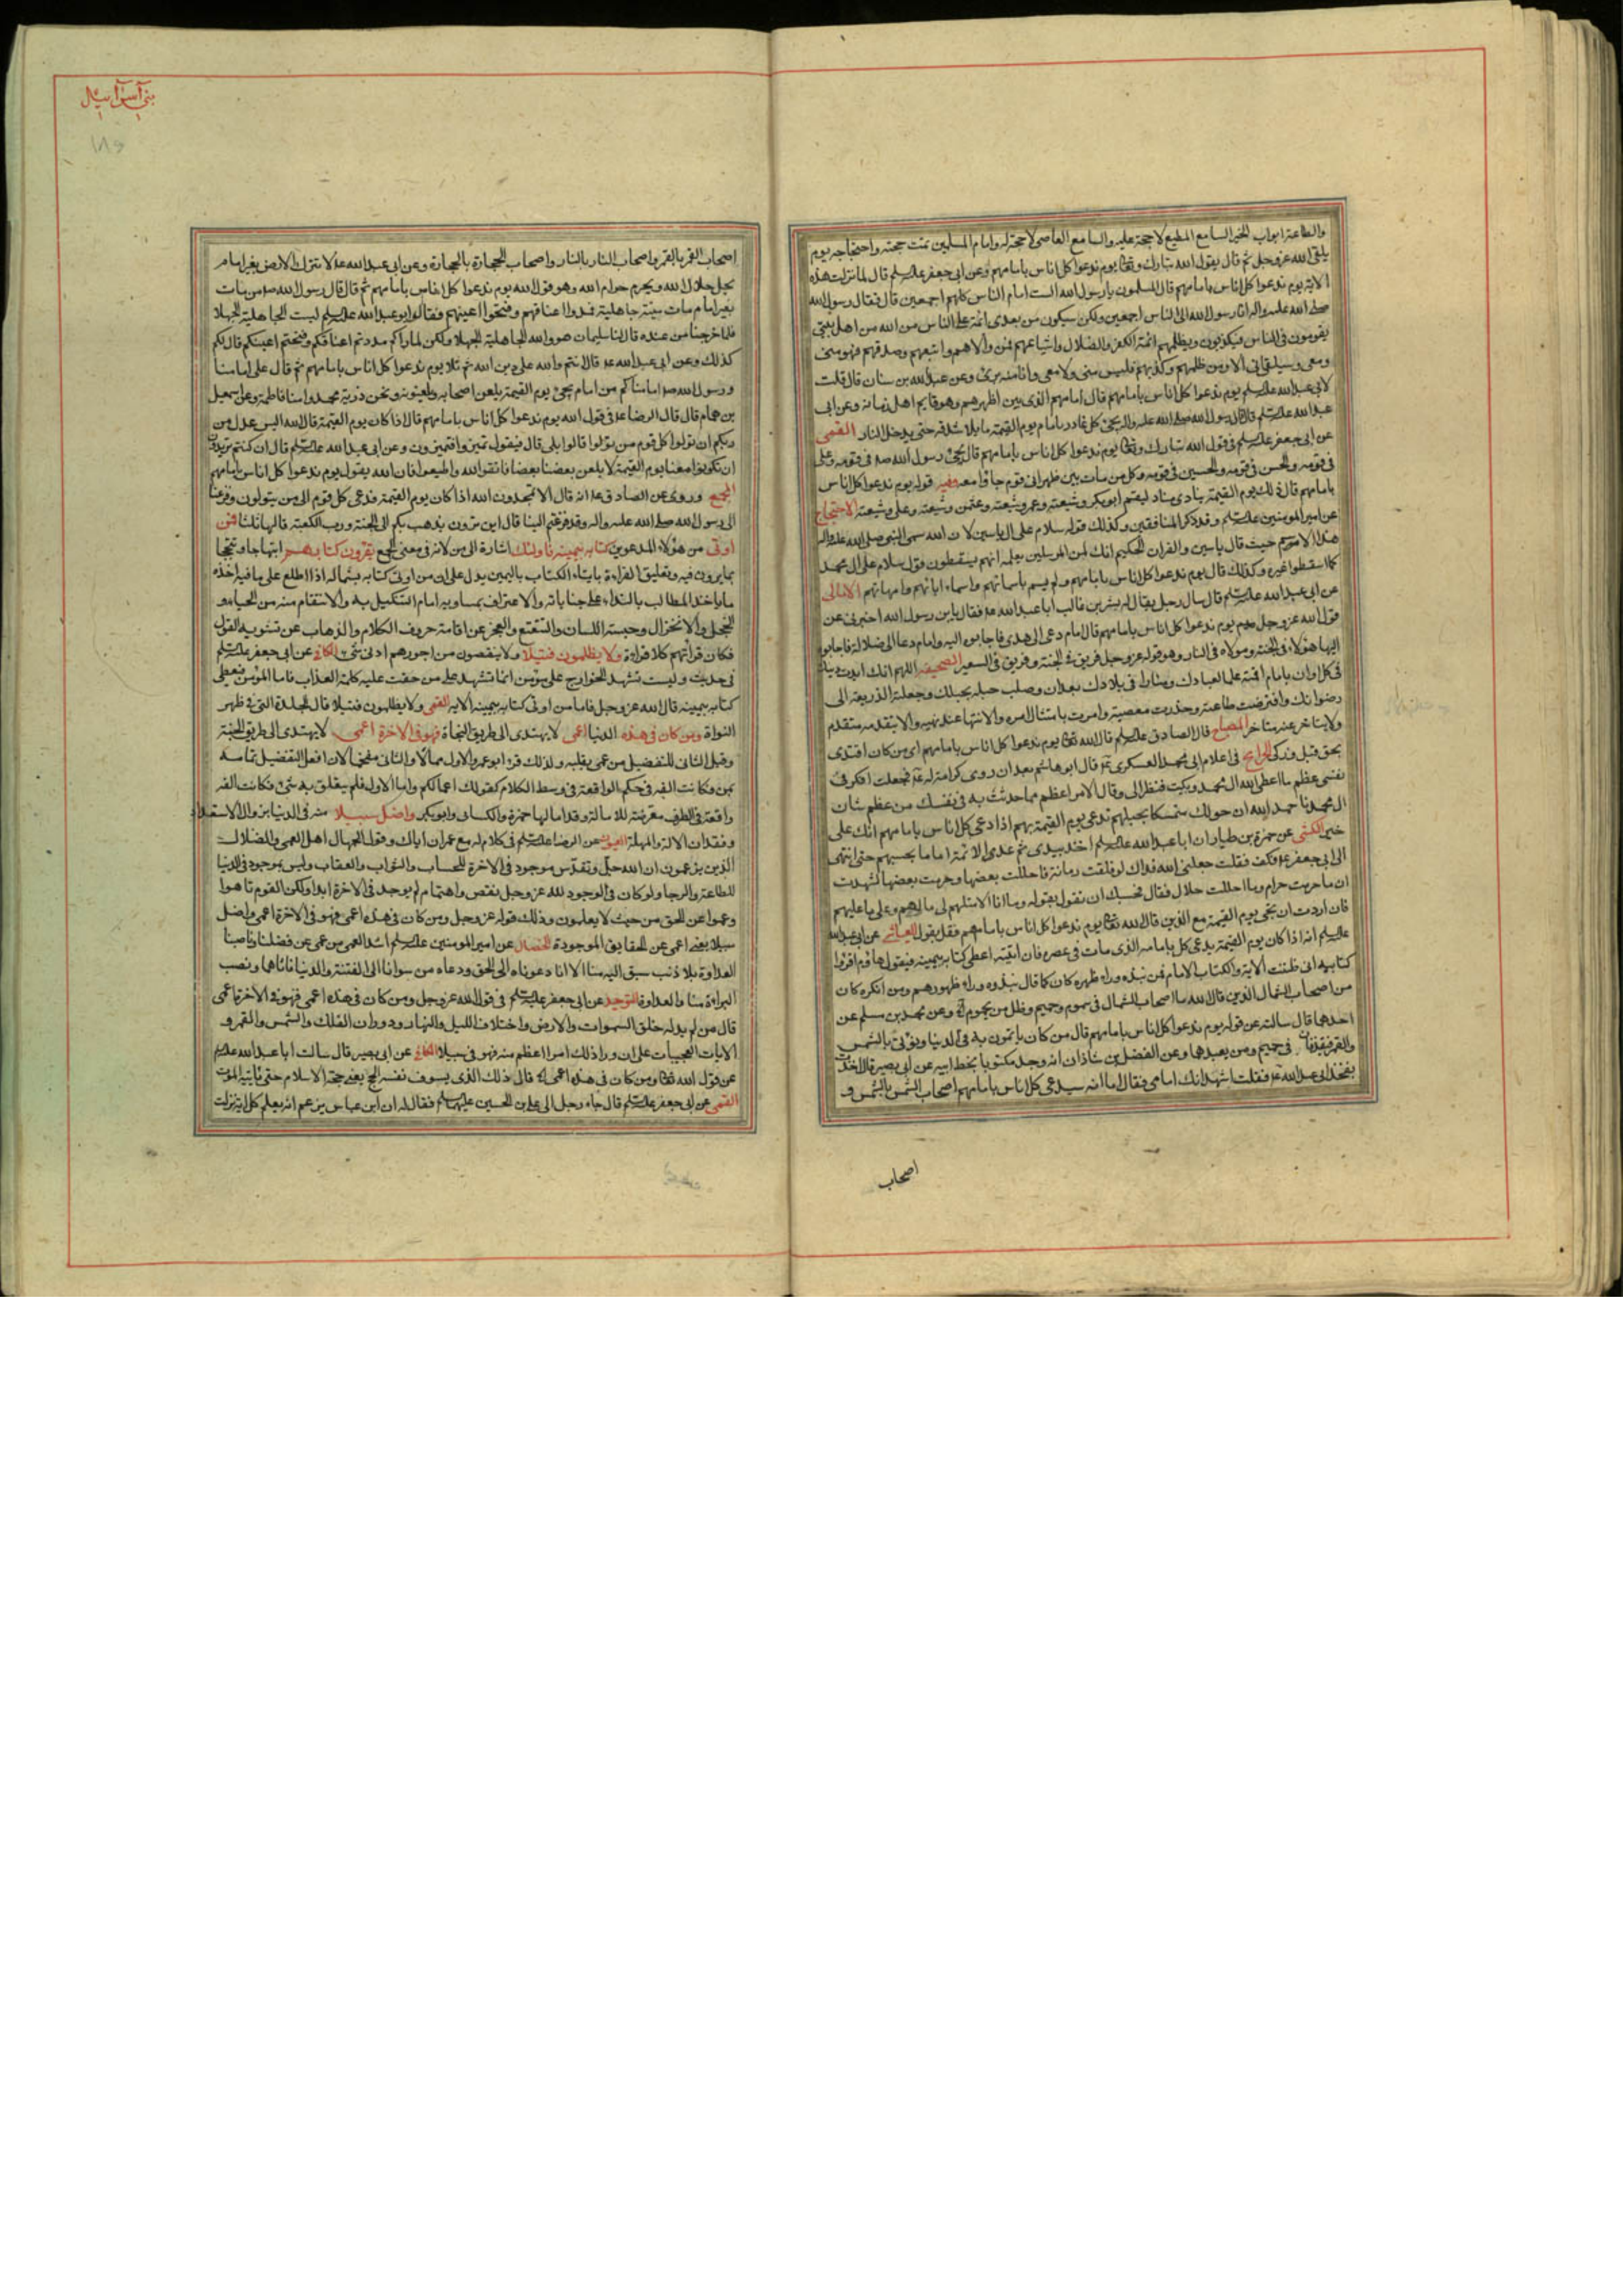 والطاعة ابواب الخير السامع المطيع لا حجة عليه والسامع العاصى لا حجة له وامام المسلمين تمت حجته واحتجاجه يوم
يلقى الله عز وجل ثم قال يقول الله تبارك وتعالى يوم ندعوا كل اناس بامامهم وعن ابى جعفر عليه السلم قال لما نزلت هذه
الاية يوم ندعوا كل اناس بامامهم قال المسلمون يا رسول الله الست امام الناس كلهم اجمعين قال فقال رسول الله
صلى الله عليه واله انا رسول الله الى الناس اجمعين ولكن سيكون من بعدى ائمة على الناس من الله من اهل بيتى
يقومون فى الناس فيكذبون ويظلمهم ائمة الكفر والضلال واشياعهم فمن والاهم واتبعهم وصدقهم فهو منى
ومعى وسيلقانى الا ومن ظلمهم وكذبهم فليس منى ولا معى وانا منه برئ وعن عبد الله بن سنان قال قلت
لابى عبد الله عليه السلم يوم ندعوا كل اناس بامامهم قال امامهم الذى بين اظهرهم وهو قايم اهل زمانه وعن ابى
عبد الله عليه السلم قال قال رسول الله صلى الله عليه واله يجئ كل غادر بامام يوم القيمة مايلا شدقه حتى يدخل النار القمى
عن ابى جعفر عليه السلم فى قول الله تبارك وتعالى يوم ندعوا كل اناس بامامهم قال يجئ رسول الله صه فى قومه وعلى
فى قومه والحسن فى قومه والحسين فى قومه وكل من مات بين ظهرانى قوم جاؤا معه وفيه قوله يوم ندعوا كل اناس
بامامهم قال ذلك يوم القيمة ينادى مناد ليقم ابو بكر وشيعته وعمر وشيعته وعثمن وشيعته وعلى وشيعته الاحتجاج
عن امير المومنين عليه السلم وقد ذكر المنافقين وكذلك قوله سلام على ال ياسين لان الله سمى النبى صلى الله عليه واله
هذا الاسم حيث قال ياسين والقران الحكيم انك لمن المرسلين بعلمه انهم يسقطون قول سلام على ال محمد
كما اسقطوا غيره وكذلك قال يوم ندعوا كل اناس بامامهم ولم يسم باسمائهم واسماء ابائهم وامهاتهم الامالى
عن ابى عبد الله عليه السلم قال سال رجل يقال له بشر بن غالب ابا عبد الله عه فقال يابن رسول الله اخبرنى عن
قول الله عز وجل يوم ندعوا كل اناس بامامهم قال امام دعى الى هدى فاجابوه اليه وامام دعا الى ضلالة فاجابوه
اليها هؤلاء فى الجنة وهؤلاء فى النار وهو قوله عز وجل فريق فى الجنة وفريق فى السعير الصحيفه اللهم انك ايدت دينك
فى كل اوان بامام اقمته علما لعبادك ومنارا فى بلادك بعد ان وصلت حبله بحبلك وجعلته الذريعة الى
رضوانك وافترضت طاعته وحذرت معصيته وامرت بامتثال امره والانتهاء عند نهيه والا يتقدمه متقدم
ولا يتاخر عنه متاخر المصباح قال الصادق عليه السلم قال الله تعالى يوم ندعوا كل اناس بامامهم اى من كان اقتدى
بمحق قبل وزكى الخرايج فى اعلام ابى محمد العسكرى عه قال ابو هاشم بعد ان روى كرامة له عه فجعلت افكر فى
نفسى عظم ما اعطى الله ال محمد وبكيت فنظر الى وقال الامر اعظم مما حدثت به فى نفسك من عظم شان
ال محمد فاحمد الله ان جعلك متمسكا بحبلهم تدعى يوم القيمة بهم اذا دعى كل اناس بامامهم انك على
خير الكشى عن حمزة بن طيار ان ابا عبد الله عليه السلم اخذ بيدى ثم عدى الائمة اماما اماما يحسبهم حتى انتهى
الى ابى جعفر عه فكف فقلت جعلنى الله فداك لو فلقت رمانة فاحللت بعضها وحرمت بعضها لشهدت
ان ما حرمت حرام وما احللت حلال فقال فحسبك ان تقول بقوله وما انا الا مثلهم لى مالهم وعلى ما عليهم
فان اردت ان تجئ يوم القيمة مع الذين قال الله تعالى يوم ندعوا كل اناس بامامهم فقل بقوله العياشى عن ابى عبد الله
عليه السلم انه اذا كان يوم القيمة يدعى كل بامامه الذى مات فى عصره فان اثبته اعطى كتابه بيمينه فيقول هاؤم اقرؤا
كتابيه انى ظننت الاية والكتاب الامام فمن نبذه وراء ظهره كان كما قال نبذوه وراء ظهورهم ومن انكره كان
من اصحاب الشمال الذين قال الله ما اصحاب الشمال فى سموم وحميم وظل من يحموم وعن محمد بن مسلم عن
احدهما قال سالته عن قوله يوم ندعوا كل اناس بامامهم قال من كان ياتمون به فى الدنيا ويؤتى بالشمس
والقمر فيقذفان فى حميم ومن يعبدهما وعن الفضل بن شاذان انه وجد مكتوبا بخط ابيه عن ابى بصير قال اخذت
بفخذ ابى عبد الله عه فقلت اشهد انك امامى فقال اما انه سيدعى كل اناس بامامهم اصحاب الشمس بالشمس و
اصحاب
بنى اسرآئيل
اصحاب القمر بالقمر واصحاب النار بالنار واصحاب الحجارة بالحجارة وعن ابى عبد الله عه لا تترك الارض بغير امام
يحل حلال الله ويحرم حرام الله وهو قول الله يوم ندعوا كل اناس بامامهم ثم قال قال رسول الله صه من مات
بغير امام مات ميتة جاهلية فمدوا اعناقهم وفتحوا اعينهم فقال ابو عبد الله عليه السلم ليست الجاهلية الجهلاء
فلما خرجنا من عنده قال لنا سليمان هو والله الجاهلية الجهلاء ولكن لما راكم مددتم اعناقكم وفتحتم اعينكم قال لكم
كذلك وعن ابى عبد الله عه قال انتم والله على دين الله ثم تلا يوم ندعوا كل اناس بامامهم ثم قال على امامنا
ورسول الله صه امامنا كم من امام يجئ يوم القيمة يلعن اصحابه ويلعنونه ونحن ذرية محمد وامنا فاطمة وعن اسمعيل
بن همام قال قال الرضا عه فى قول الله يوم ندعوا كل اناس بامامهم قال اذا كان يوم القيمة قال الله اليس عدل من
ربكم ان نولوا كل قوم من تولوا قالوا بلى قال فيقول تميزوا فيتميزون وعن ابى عبد الله عليه السلم قال ان كنتم تريدون
ان تكونوا معنا يوم القيمة لا يلعن بعضنا بعضا فاتقوا الله واطيعوا فان الله يقول يوم ندعوا كل اناس بامامهم
المجمع وروى عن الصادق عه انه قال الا تحمدون الله اذا كان يوم القيمة فدعى كل قوم الى من يتولون وفزعنا
الى رسول الله صلى الله عليه واله وفزعتم الينا قال اين ترون يذهب بكم الى الجنة ورب الكعبة قالها ثلثا فمن
اوتى من هؤلاء المدعوين كتابه بيمينه فاولئك اشارة الى من لانه فى معنى الجمع يقرؤن كتابهم ابتهاجا وتبجحا
بما يرون فيه وتعليق القراءة بايتاء الكتاب باليمين يدل على ان من اوتى كتابه بشماله اذا اطلع على ما فيه اخذه
ما ياخذ المطالب بالنداء على جناياته والاعتراف بمساويه امام التنكيل به والانتقام منه من الحياء و
الخجل والانخزال وحبسة اللسان والتتعتع والعجز عن اقامة حروف الكلام والذهاب عن تسوية القول
فكان قرائتهم كلا قراءة ولا يظلمون فتيلا ولا ينقصون من اجورهم ادنى شئ الكافى عن ابى جعفر عليه السلم
فى حديث وليست تشهد الجوارح على مؤمن انما تشهد على من حقت عليه كلمة العذاب فاما المؤمن فيعطى
كتابه بيمينه قال الله عز وجل فاما من اوتى كتابه بيمينه الاية القمى ولا يظلمون فتيلا قال الجلدة التى فى ظهر
النواة ومن كان فى هذه الدنيا اعمى لا يهتدى الى طريق النجاة فهو فى الاخرة اعمى لا يهتدى الى طريق الجنة
وقيل الثانى للتفضيل من عمى بقلبه ولذلك قرء ابو عمرو الاول ممالا والثانى مفخما لان افعل التفضيل تمامه
بمن فكانت الفه فى حكم الواقعة فى وسط الكلام كقولك اعمالكم واما الاول فلم يتعلق به شئ فكانت الفه
واقعة فى الطرف معرضة للامالة وقد امالها حمزة والكسائى وابو بكر واضل سبيلا منه فى الدنيا لزوال الاستعداد
وفقدان الالة والمهلة العيون عن الرضا عليه السلم فى كلام له مع عمران اياك وقول الجهال اهل العمى والضلال
الذين يزعمون ان الله جل وتقدس موجود فى الاخرة للحساب والثواب والعقاب وليس بموجود فى الدنيا
للطاعة والرجا ولو كان فى الوجود لله عز وجل نقص واهتضام لم يوجد فى الاخرة ابدا ولكن القوم تاهوا
وعموا عن الحق من حيث لا يعلمون وذلك قوله عز وجل ومن كان فى هذه اعمى فهو فى الاخرة اعمى واضل
سبيلا يعنى اعمى عن الحقايق الموجودة الخصال عن امير المومنين عليه السلم اشد العمى من عمى عن فضلنا وناصبنا
العداوة بلا ذنب سبق اليه منا الا انا دعوناه الى الحق ودعاه من سوانا الى الفتنة والدنيا فاتاهما ونصب
البراءة منا والعداوة التوحيد عن ابى جعفر عليه السلم فى قول الله عز وجل ومن كان فى هذه اعمى فهو فى الاخرة اعمى
قال من لم يدله خلق السموات والارض واختلاف الليل والنهار ودوران الفلك والشمس والقمر و
الايات العجيبات على ان وراء ذلك امرا اعظم منه فهو فى سبيلا الكافى عن ابى بصير قال سالت ابا عبد الله عليه السلم
عن قول الله تعالى ومن كان فى هذه اعمى قال ذلك الذى يسوف نفسه الحج يعنى حجة الاسلام حتى ياتيه الموت
القمى عن ابى جعفر عليه السلم قال جاء رجل الى على بن الحسين عليهما السلم فقال له ان ابن عباس يزعم انه يعلم كل اية نزلت